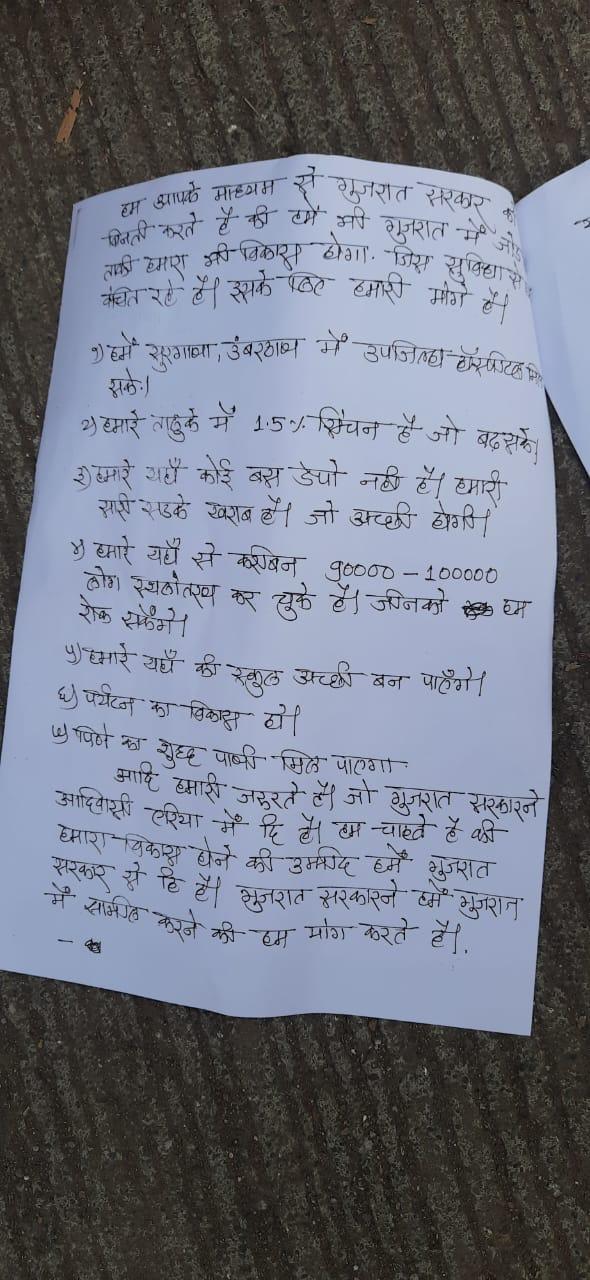 हम आपके माध्यम से गुजरात सरकार को
बिनती करते है की हमें भी गुजरात में जोड
ताकी हमारा भी विकास होगा. जिस सुविधा से
वंचित रहे है। इसके लिए हमारी मांगे है।
१) हमें सुरगाणा, उंबरठाण में उपजिल्हा हॉस्पिटल मिल
सके।
२) हमारे तालुके में 1.5% सिंचन है जो बढ सके।
३) हमारे यहाँ कोई बस डेपो नही है। हमारी
सारी सडके खराब है। जो अच्छी होगी।
४) हमारे यहाँ से करीबन 90000 - 100000
लोग स्थलांतरण कर चुके है। जिनको हम
रोक सकेंगे।
५) हमारे यहाँ की स्कुल अच्छी बन पाएँगे।
६) पर्यटन का विकास हो।
७) पिने का शुद्ध पाणी मिल पाएगा
आदि हमारी जरुरते है। जो गुजरात सरकारने
आदिवासी एरिया में दि है। हम चाहते है की
हमारा विकास होने की उम्मीद हमें गुजरात
सरकार से हि है। गुजरात सरकारने हमें गुजरात
में सामील करने की हम मांग करते है।.